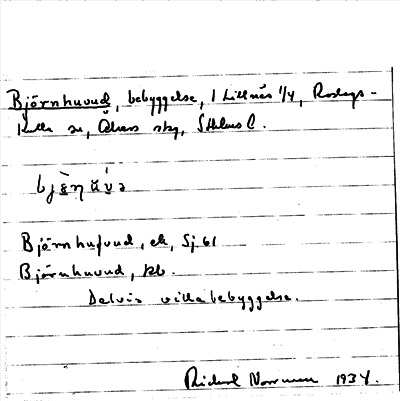 Björnhuvud, bebyggelse, 1 Lillnäs 1/4, Roslags-
Kulla sn, Åkers skg, Sthlms l.
bjὲηŭv́ə
Björnhufvud, ek, Sj 61
Björnhuvud, kb.
Delvis villabebyggelse.
Rickard 1934.